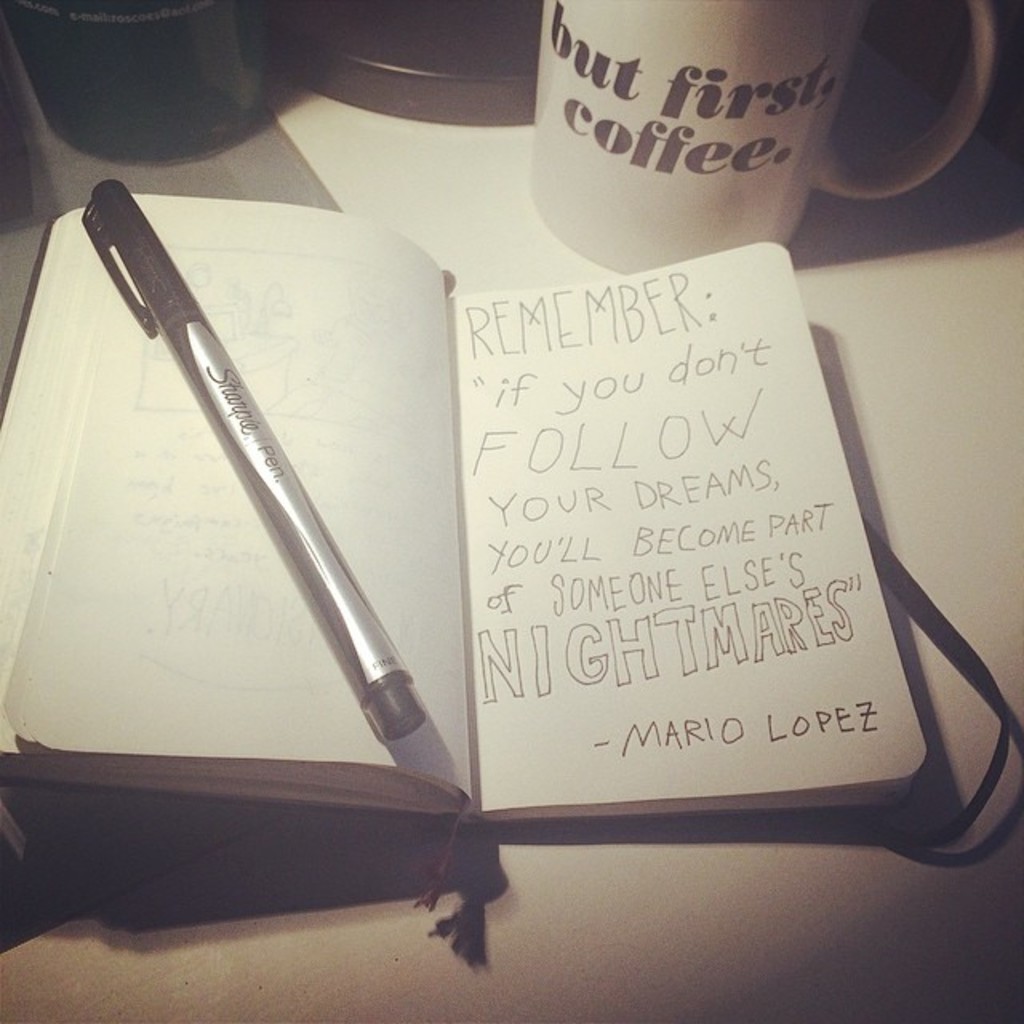 e-mail:roscoes@aol.com
but first,
coffee.
Sharpie Pen.
FINE
REMEMBER:
"if you don't
FOLLOW
YOUR DREAMS,
YOU'LL BECOME PART
of SOMEONE ELSE'S
NIGHTMARES"
- MARIO LOPEZ